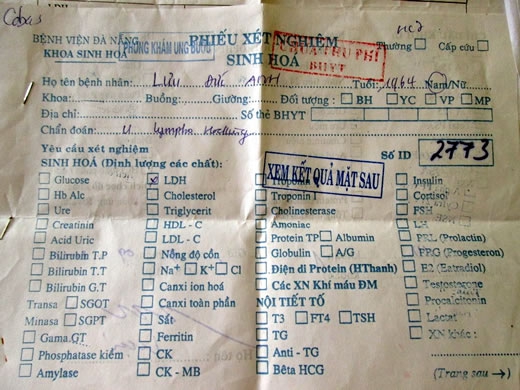 Cobas
BỆNH VIỆN ĐÀ NẴNG
KHOA SINH HOÁ
PHÒNG KHÁM UNG BƯỚU
PHIẾU XÉT NGHIỆM
SINH HOÁ
CHƯA THU PHÍ
BHYT
Thường Cấp cứu
Họ tên bệnh nhân: LƯU ANH Tuổi: 1964 Nam/Nữ
Khoa: Buồng: Giường: Đối tượng : BH YC VP MP
Địa chỉ: Số thẻ BHYT
Chẩn đoán: U lympho
Yêu cầu xét nghiệm
Số ID 2773
SINH HOÁ (Định lượng các chất):
XEM KẾT QUẢ MẶT SAU
Glucose LDH Insulin
Hb Alc Cholesterol Troponin I Cortisol
Ure Triglycerit Cholinesterase FSH
Creatinin HDL - C Amoniac LH
Acid Uric LDL - C Protein TP Albumin PRL (Prolactin)
Bilirubin T.P Nồng độ cồn Globulin A/G PRG (Progesteron)
Bilirubin T.T Na+ K+ Cl Điện di Protein (HThanh) E2 (Estradiol)
Bilirubin G.T Canxi ion hoá Các XN Khí máu ĐM Testosterone
Transa SGOT Canxi toàn phần NỘI TIẾT TỐ Procalcitonin
Minasa SGPT Sắt T3 FT4 TSH Lactat
Gama.GT Ferritin TG XN khác :
Phosphatase kiềm CK Anti - TG
Amylase CK - MB Bêta HCG (Trang sau →)